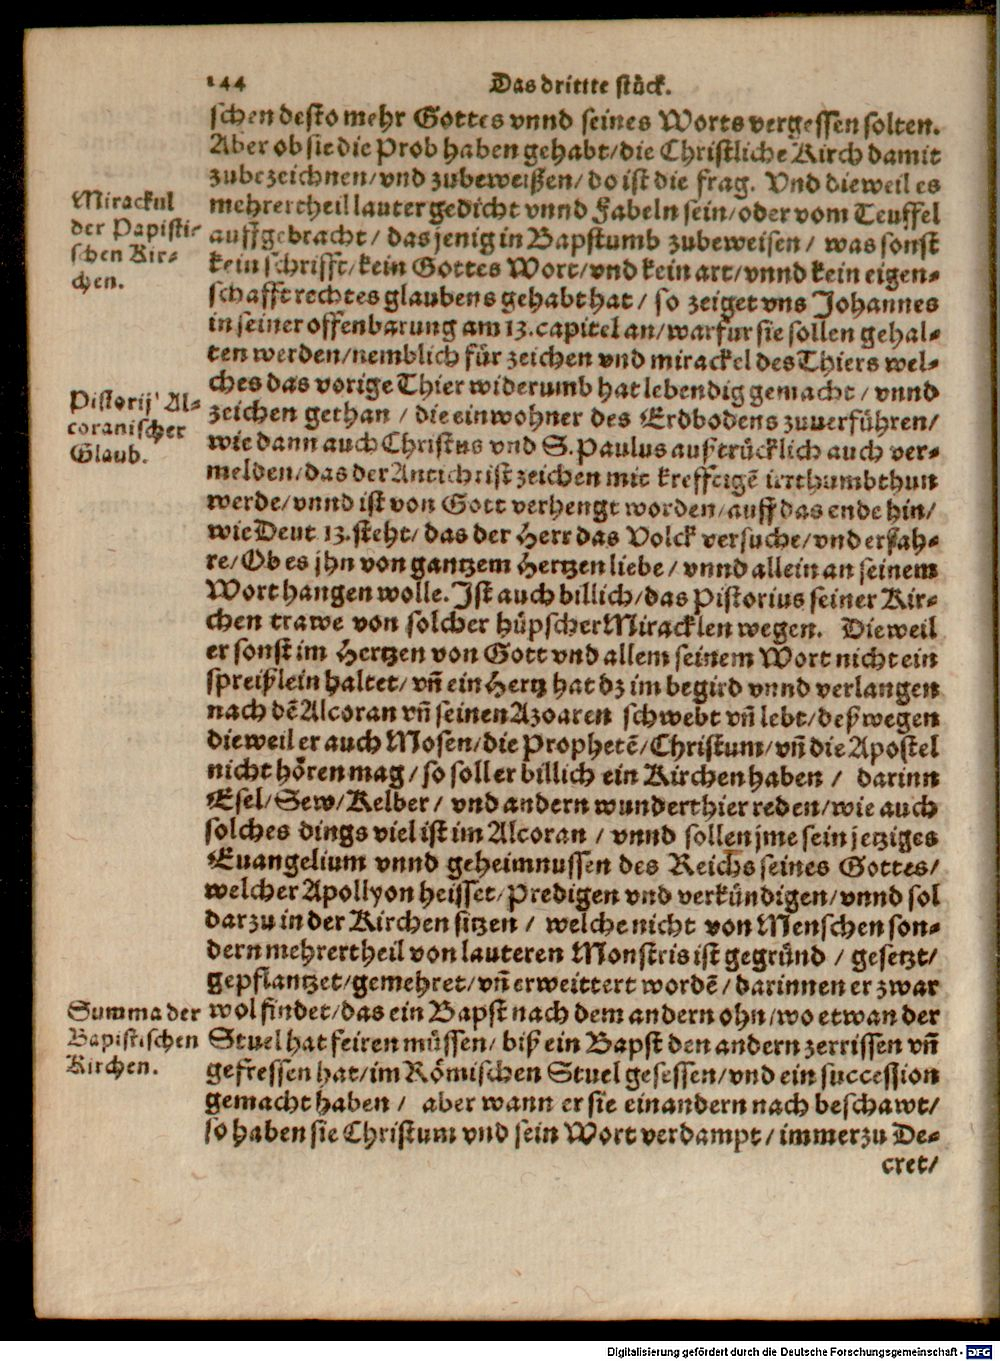 144
Das drittte stůck.
schen desto mehr Gottes vnnd seines Worts vergessen solten.
Aber ob sie die Prob haben gehabt/die Christliche Kirch damit
zubezeichnen/vnd zubeweißen/do ist die frag. Vnd dieweil es
mehrertheil lauter gedicht vnnd Fabeln sein/oder vom Teuffel
auffgebracht/ das jenig in Bapstumb zubeweisen/ was sonst
kein schrifft/kein Gottes Wort/vnd kein art/vnnd kein eigen-
schafft rechtes glaubens gehabt hat/ so zeiget vns Johannes
in seiner offenbarung am 13. capitel an/warfur sie sollen gehal-
ten werden/nemblich für zeichen vnd mirackel des Thiers wel-
ches das vorige Thier widerumb hat lebendig gemacht/ vnnd
zeichen gethan/ die einwohner des Erdbodens zuuerführen/
wie dann auch Christus vnd S. Paulus außtrücklich auch ver-
melden/das der Antichrist zeichen mit krefftigē irrthumb thun
werde/vnnd ist von Gott verhengt worden/auff das ende hin/
wie Deut 13. steht/ das der Herr das Volck versuche/vnd erfah-
re/Ob es jhn von gantzem Hertzen liebe/ vnnd allein an seinem
Wort hangen wolle. Ist auch billich/das Pistorius seiner Kir-
chen trawe von solcher hüpscher Miracklen wegen. Dieweil
er sonst im Hertzen von Gott vnd allem seinem Wort nicht ein
spreißlein haltet/ vñ ein Hertz hat dz im begird vnnd verlangen
nach dē Alcoran vñ seinen Azoaren schwebt vñ lebt/deßwegen
dieweil er auch Mosen/die Prophetē/Christum/vñ die Apostel
nicht hören mag/so soll er billich ein Kirchen haben/ darinn
Esel/Sew/Kelber/ vnd andern wunderthier reden/wie auch
solches dings viel ist im Alcoran/ vnnd sollen jme sein jetziges
Euangelium vnnd geheimnussen des Reichs seines Gottes/
welcher Apollyon heisset/Predigen vnd verkündigen/vnnd sol
darzu in der Kirchen sitzen/ welche nicht von Menschen son-
dern mehrertheil von lauteren Monstris ist gegründ/ gesetzt/
gepflantzet/gemehret/vñ erweittert wordē/darinnen er zwar
wol findet/das ein Bapst nach dem andern ohn/wo etwan der
Stuel hat feiren müssen/ biß ein Bapst den andern zerrissen vñ
gefressen hat/im Römischen Stuel gesessen/vnd ein succession
gemacht haben/ aber wann er sie einandern nach beschawt/
so haben sie Christum vnd sein Wort verdampt/immerzu De-
cret/
Mirackul
der Papisti-
schen Kir-
chen.
Pistorij Al-
coranischer
Glaub.
Summa der
Bapistischen
Kirchen.
Digitalisierung gefördert durch die Deutsche Forschungsgemeinschaft - DFG